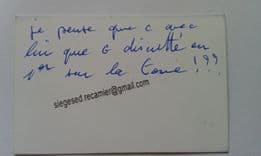 je pense que c avec
lui que G discutté en
1er sur la
siegesed.recamier@gmail.com